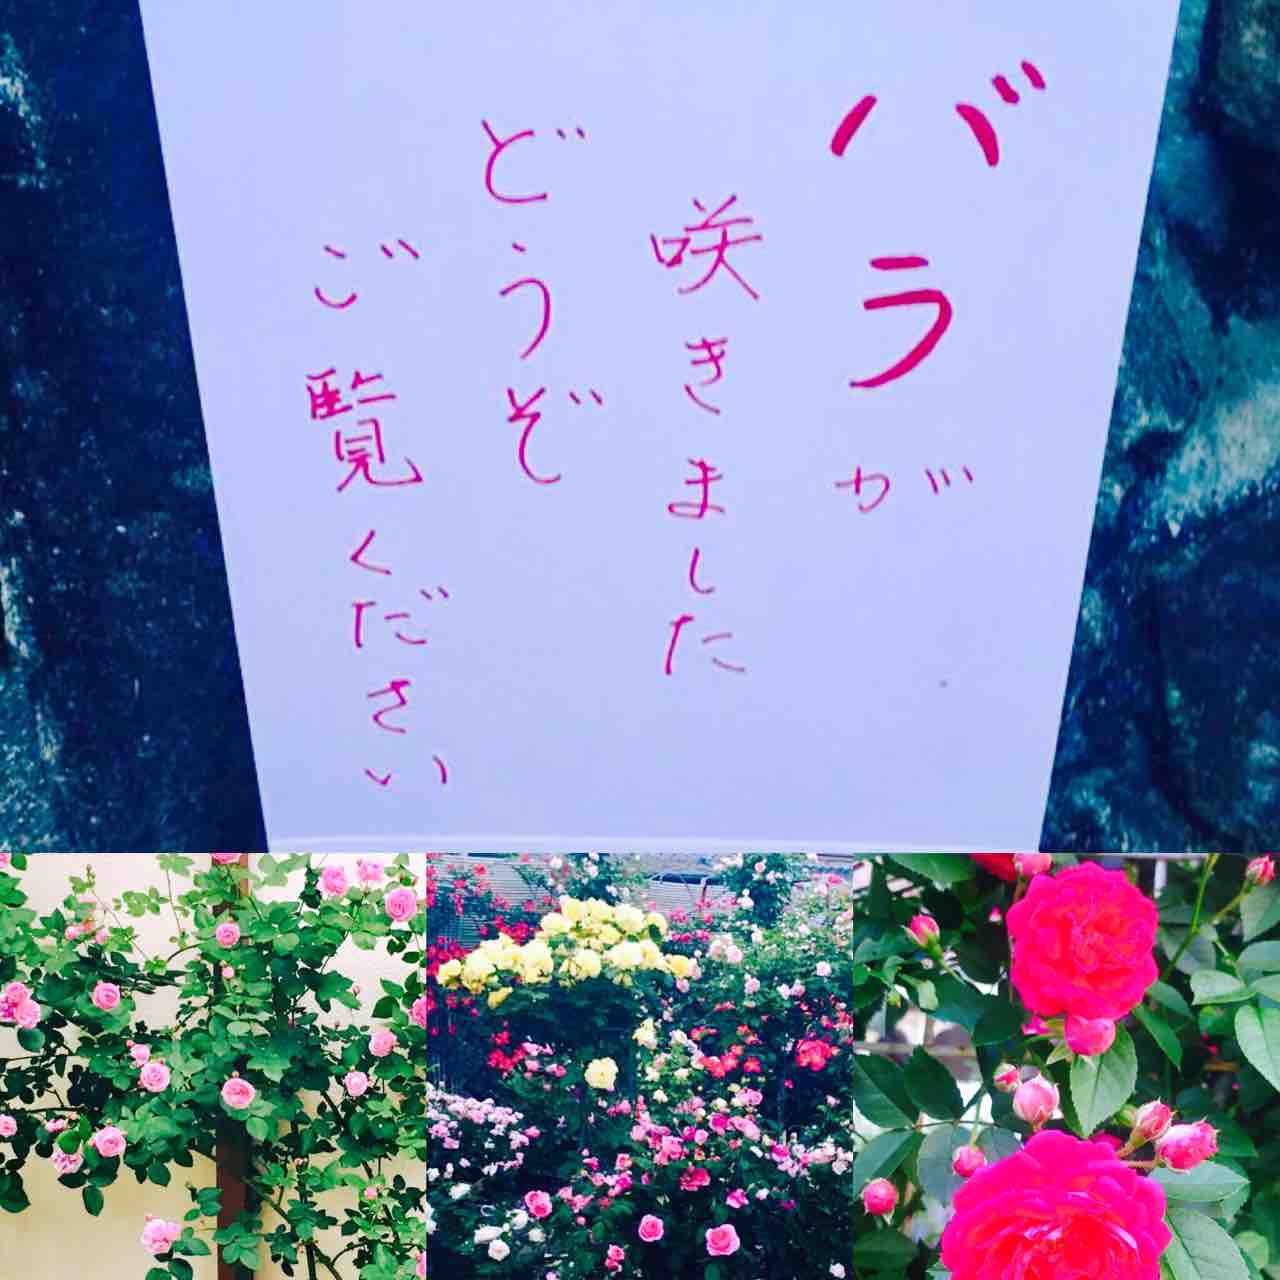 バラが
咲きました
どうぞ
ご覧ください